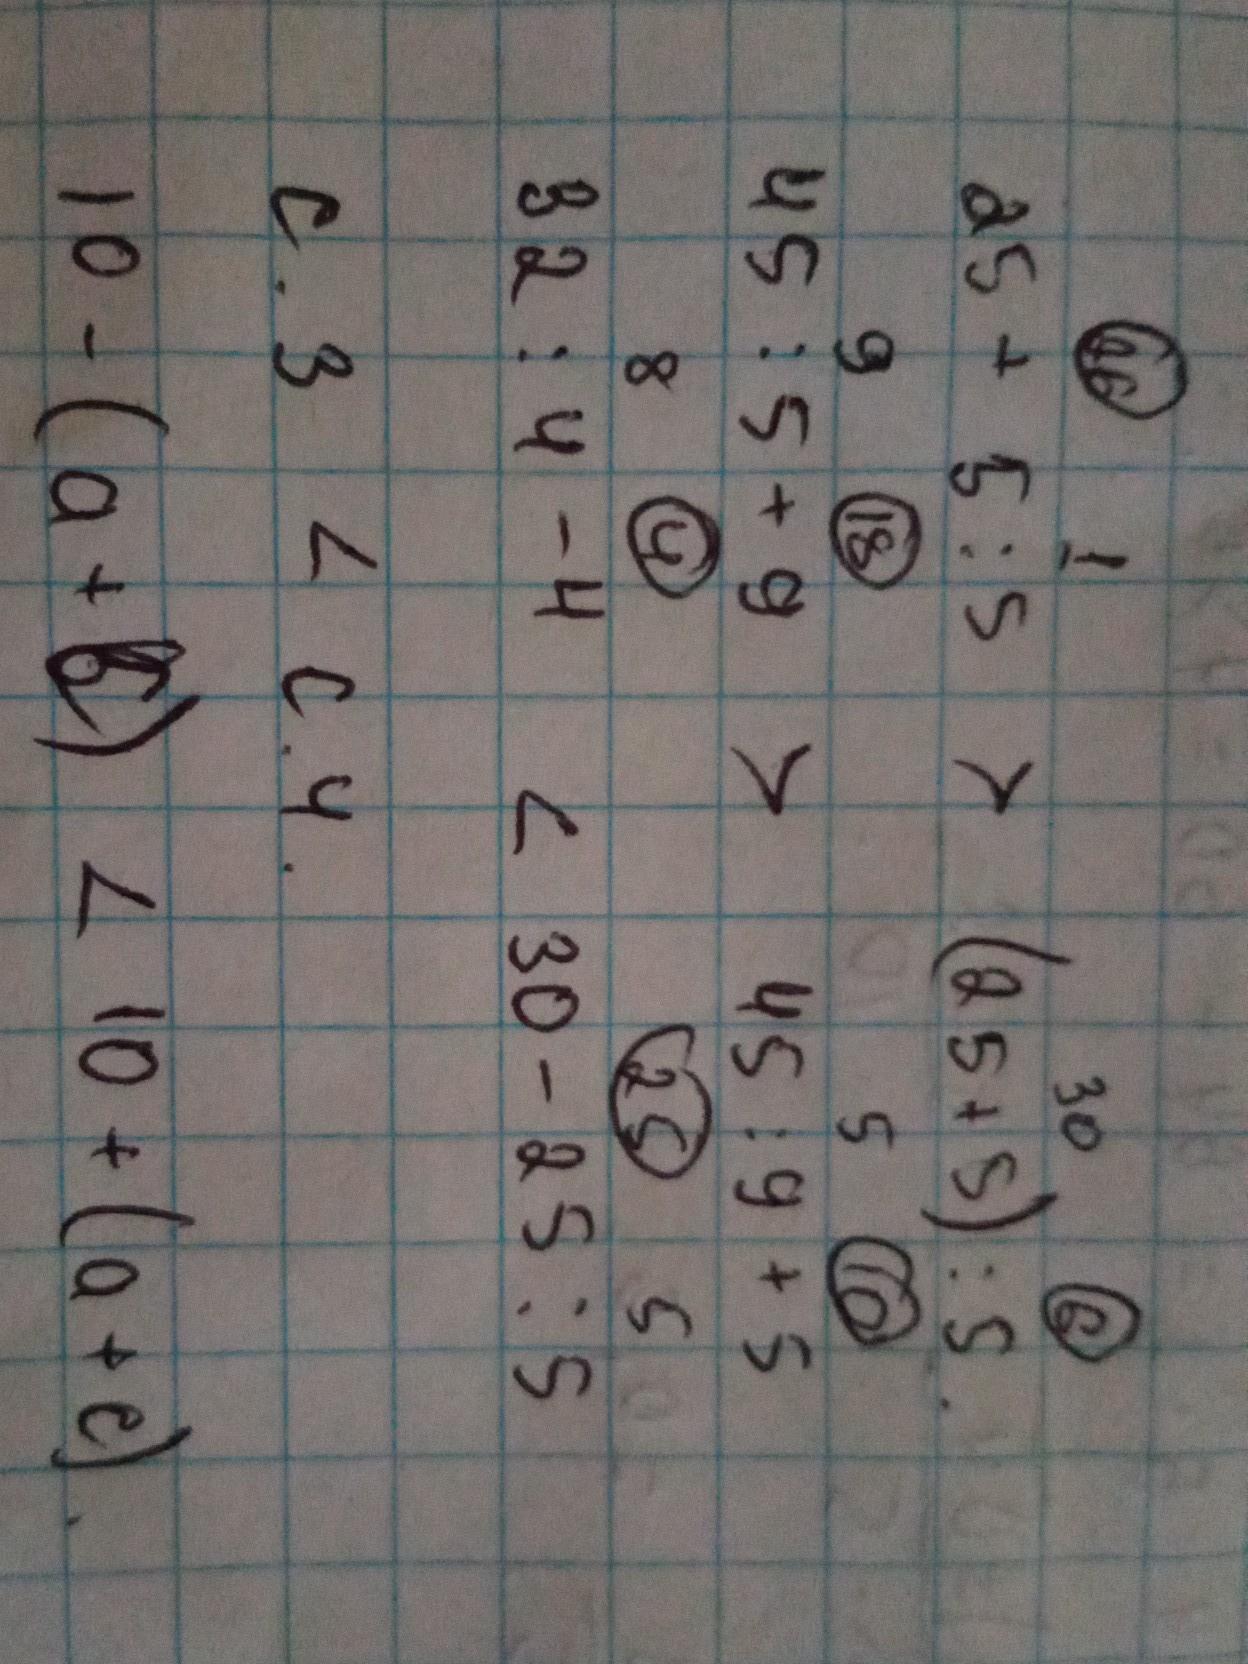 26 1 30 6
25 + 5 : 5 > (25 + 5) : 5.
9 18 5 10
45 : 5 + 9 > 45 : 9 + 5
8 4 25 5
32 : 4 - 4 < 30 - 25 : 5
c · 3 < c · 4.
10 - (a + c) < 10 + (a + c).